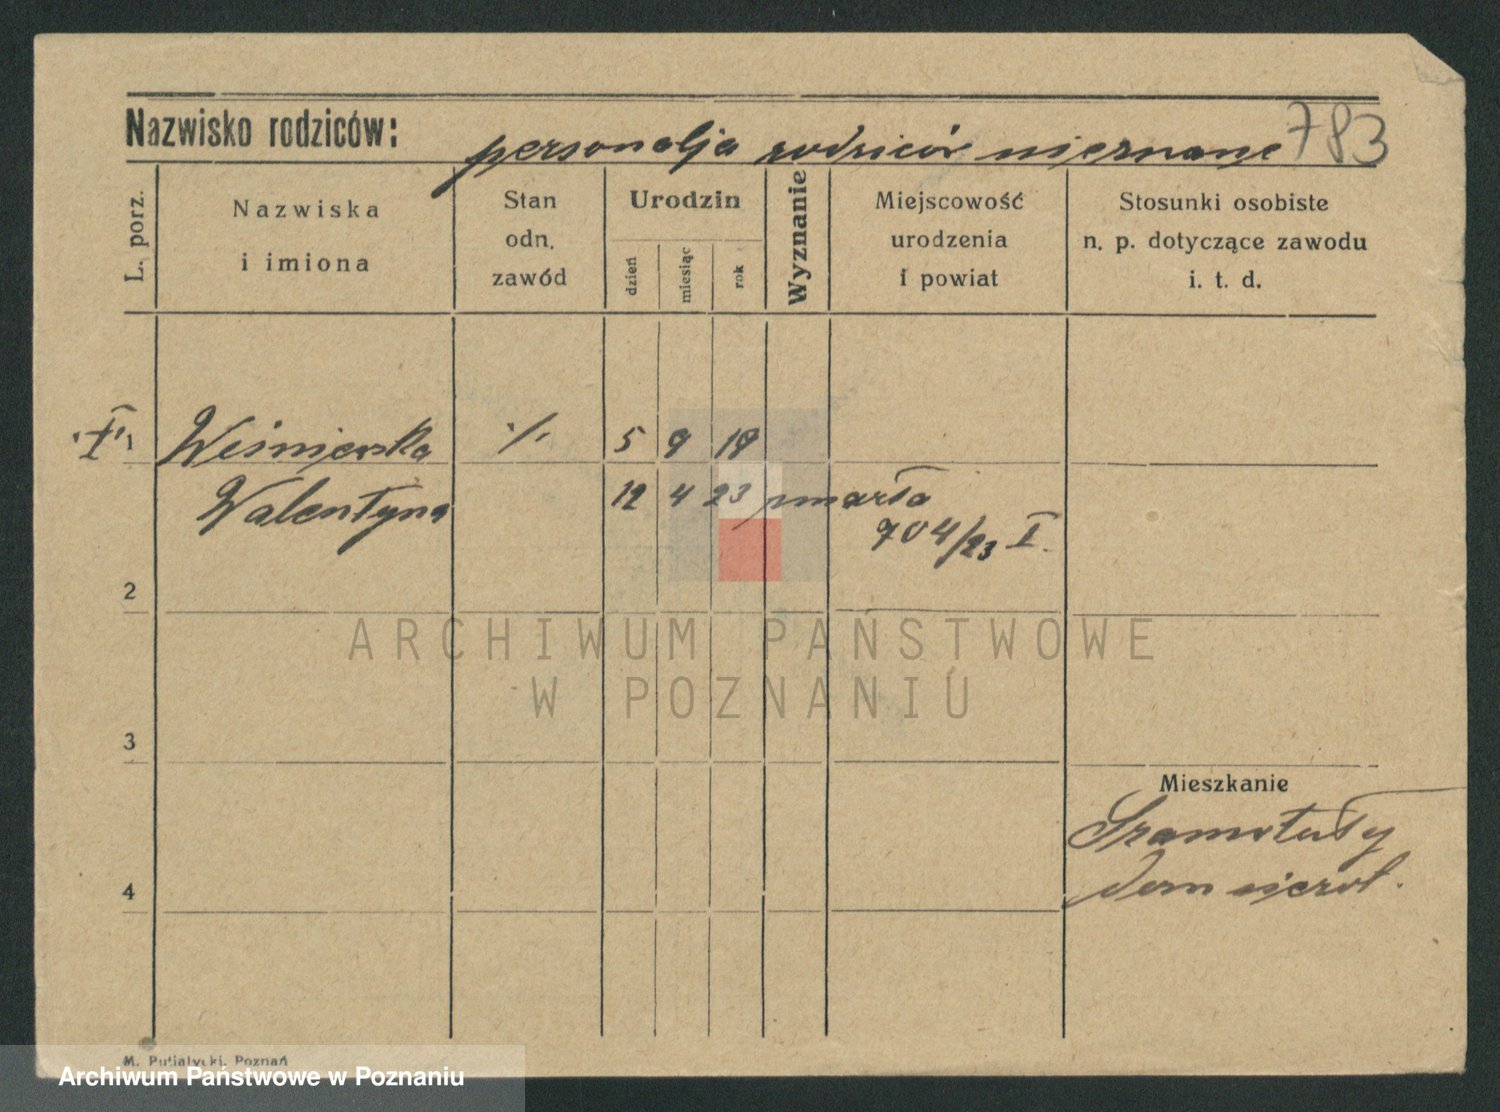 783
Nazwisko rodziców: personalja rodziców nieznane
L. porz.
Nazwiska
i imiona
Stan
odn.
zawód
Urodzin
dzień
miesiąc
rok
Wyznanie
Miejscowość
urodzenia
i powiat
Stosunki osobiste
n. p. dotyczące zawodu
i. t. d.
Wiśniewska ./. 5 9 19
Walentyna 12 4 23 zmarła
704/23 I.
2
3
4
Mieszkanie
Szamotuły
dom sierot.
ARCHIWUM PAŃSTWOWE
W POZNANIU
M. Putiatycki, Poznań
Archiwum Państwowe w Poznaniu